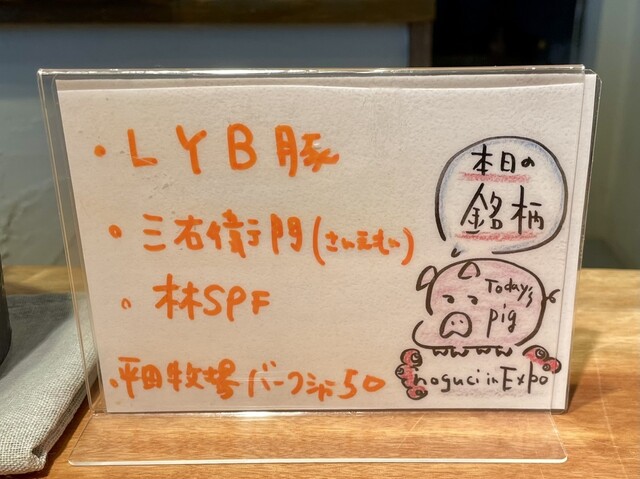 ・LYB豚
・三右衛門(さんえもん)
・林SPF
・平田牧場バークシャー50
本日の
銘柄
Today's
pig
noguci in Expo